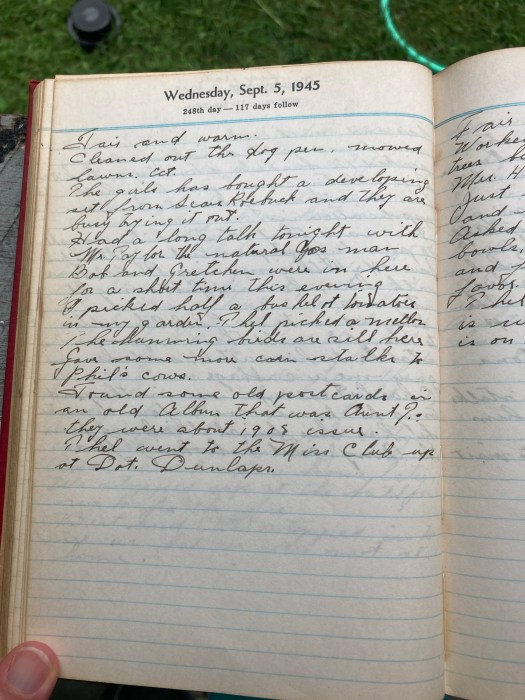 Wednesday, Sept. 5, 1945
248th day — 117 days follow
Fair and warm.
Cleaned out the dog pen. mowed
lawns. ect.
The girls has bought a developing
set from Sears Roebuck and they are
busy trying it out.
Had a long talk tonight with
Mr. Taylor the natural Gas man
Bob and Gretchen were in here
for a short time this evening
I picked half a bushel of tomatoes
in my garden. Thel picked a mellon
The humming birds are still here
Gave some more corn stalks to
Phil's cows.
Found some old postcards in
an old Album that was Aunt J.:
they were about 1908 issue.
Thel went to the Miss Club up
at Dot. Dunlaps.
Fair
Worke
trees
Mrs. H
Just
and
Asked
bowls,
and
favor.
Thel
is
is on